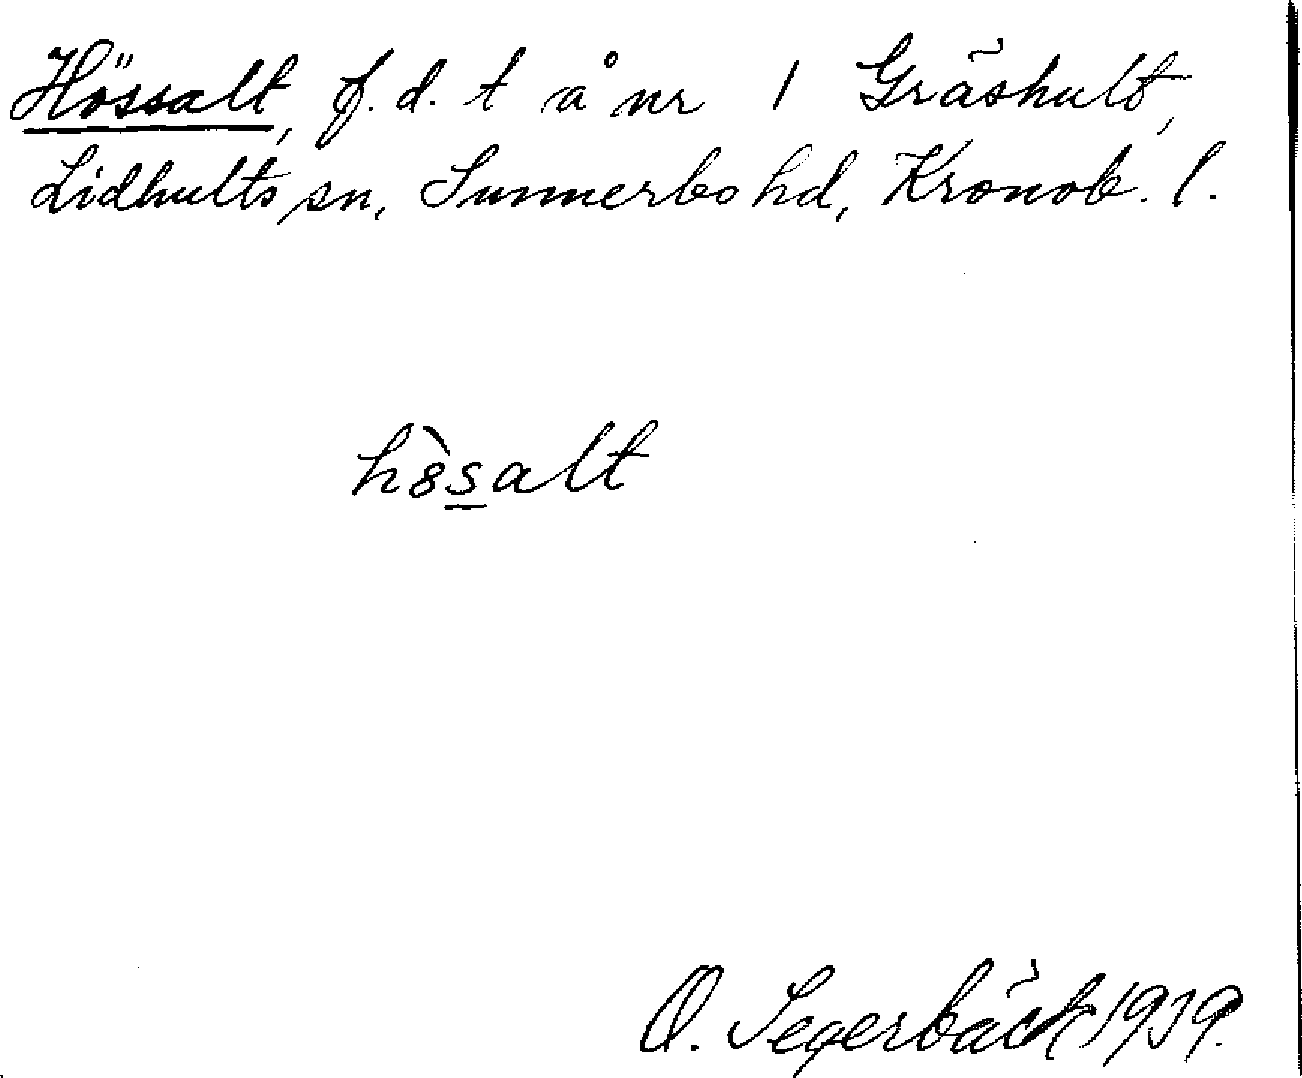 Hössalt, f.d. t å nr 1 Gräshult,
Lidhults sn, Sunnerbo hd, Kronob. l.
hò̀salt
O. Segerbäck 1939.